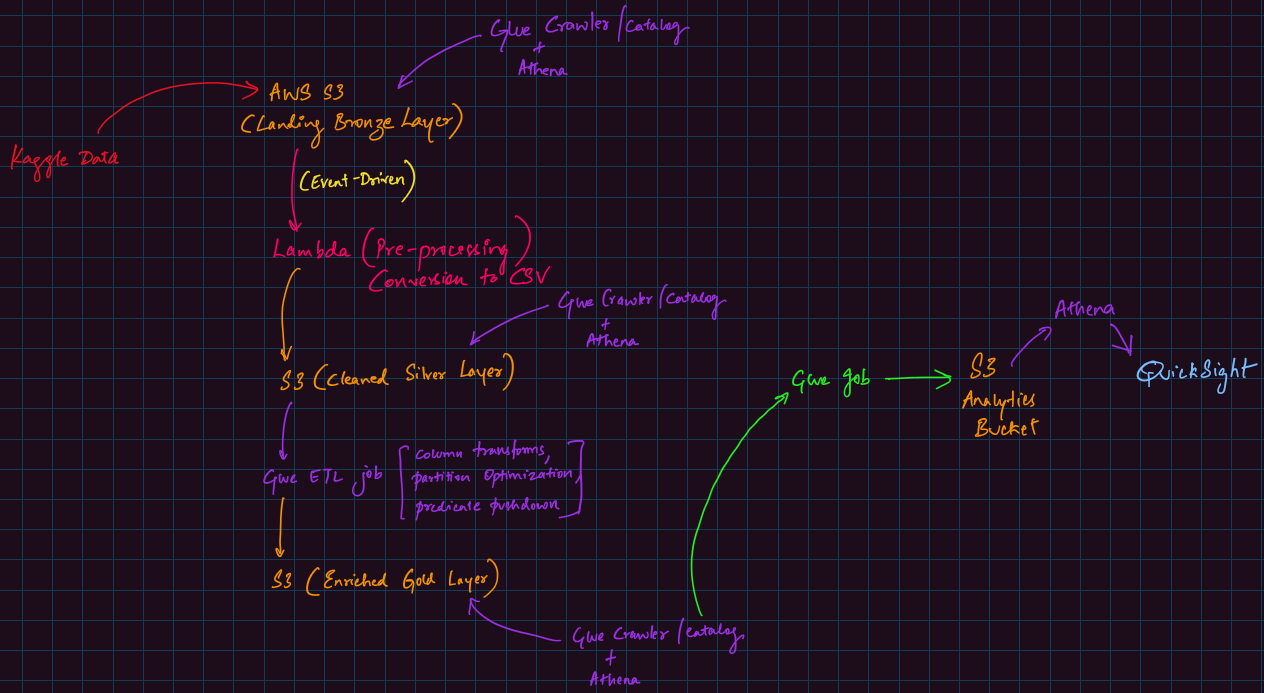 Glue Crawler / Catalog
+
Athena
AWS S3
(Landing Bronze Layer)
Kaggle Data
(Event-Driven)
Lambda (Pre-processing
Conversion to CSV)
Glue Crawler / Catalog
+
Athena
S3 (Cleaned Silver Layer)
Glue ETL job [column transforms,
partition Optimization,
predicate pushdown]
S3 (Enriched Gold Layer)
Glue Crawler / Catalog
+
Athena
Glue Job
S3
Analytics
Bucket
Athena
QuickSight